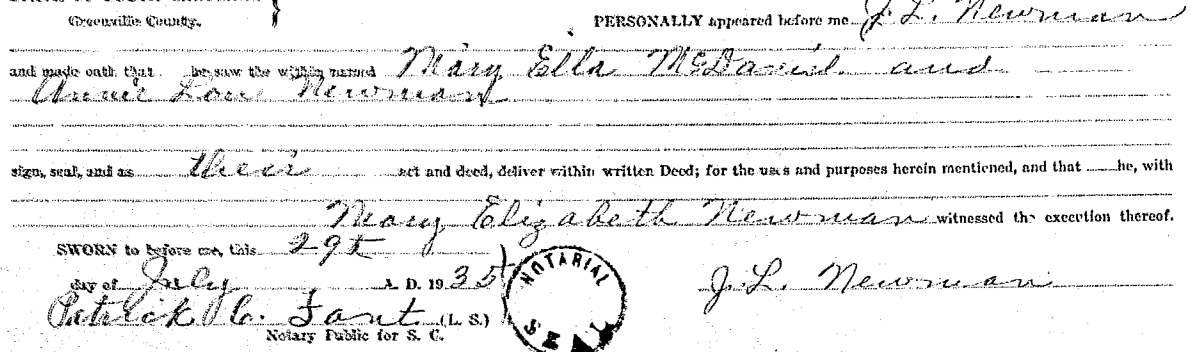 Greenville County.
PERSONALLY appeared before me J. L. Newman
and made oath that he saw the within named Mary Ella McDaniel and
Annie Lou Newman
sign, seal, and as their act and deed, deliver within written Deed; for the uses and purposes herein mentioned, and that he, with
Mary Elizabeth Newman witnessed the execution thereof.
SWORN to before me, this 29th
day of July A. D. 1935
J. L. Newman
Patrick C. Fant (L. S.)
Notary Public for S. C.
NOTARIAL